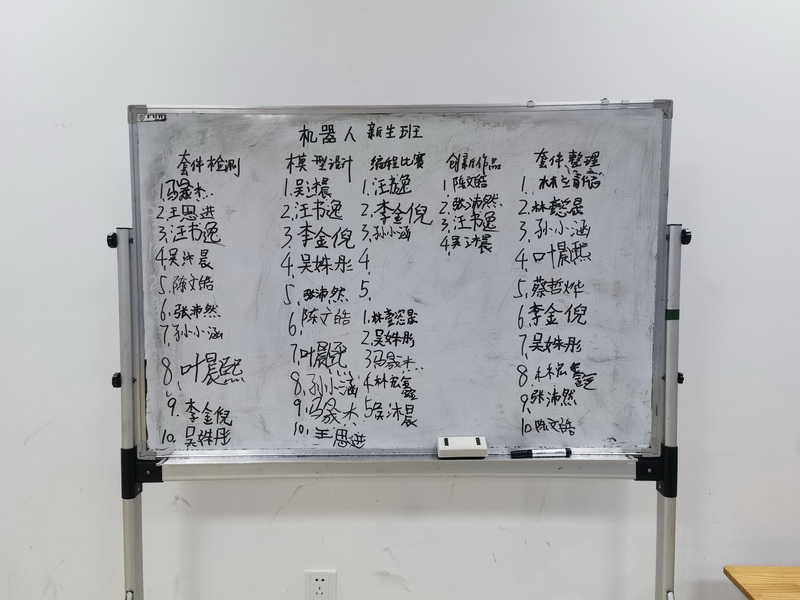 机器人 新生班
套件检测
1.冯晟杰
2.王思进
3.汪书逸
4.吴沐晨
5.陈文皓
6.张沛然
7.孙小涵
8.叶晨熙
9.李金倪
10.吴姝彤
模型设计
1.吴沐晨
2.汪书逸
3.李金倪
4.吴姝彤
5.张沛然
6.陈文皓
7.叶晨熙
8.孙小涵
9.冯晟杰
10.王思进
编程比赛
1.汪书逸
2.李金倪
3.孙小涵
4.
5.
1.林懿晟
2.吴姝彤
3.冯晟杰
4.林宏鑫
5.吴沐晨
创新作品
1.陈文皓
2.张沛然
3.汪书逸
4.吴沐晨
套件整理
1.林
2.林懿晟
3.孙小涵
4.叶晨熙
5.蔡哲烨
6.李金倪
7.吴姝彤
8.林宏鑫
9.张沛然
10.陈文皓